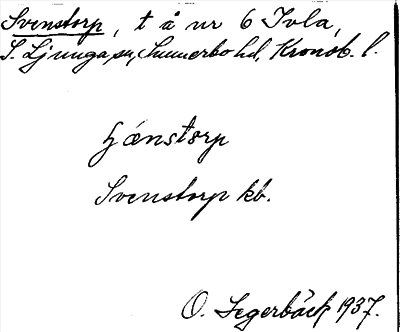 Svenstorp, t å nr 6 Tvla,
S. Ljunga sn, Sunnerbo hd, Kronob. l.
Svenstorp kb.
O. Segerbäck 1937.